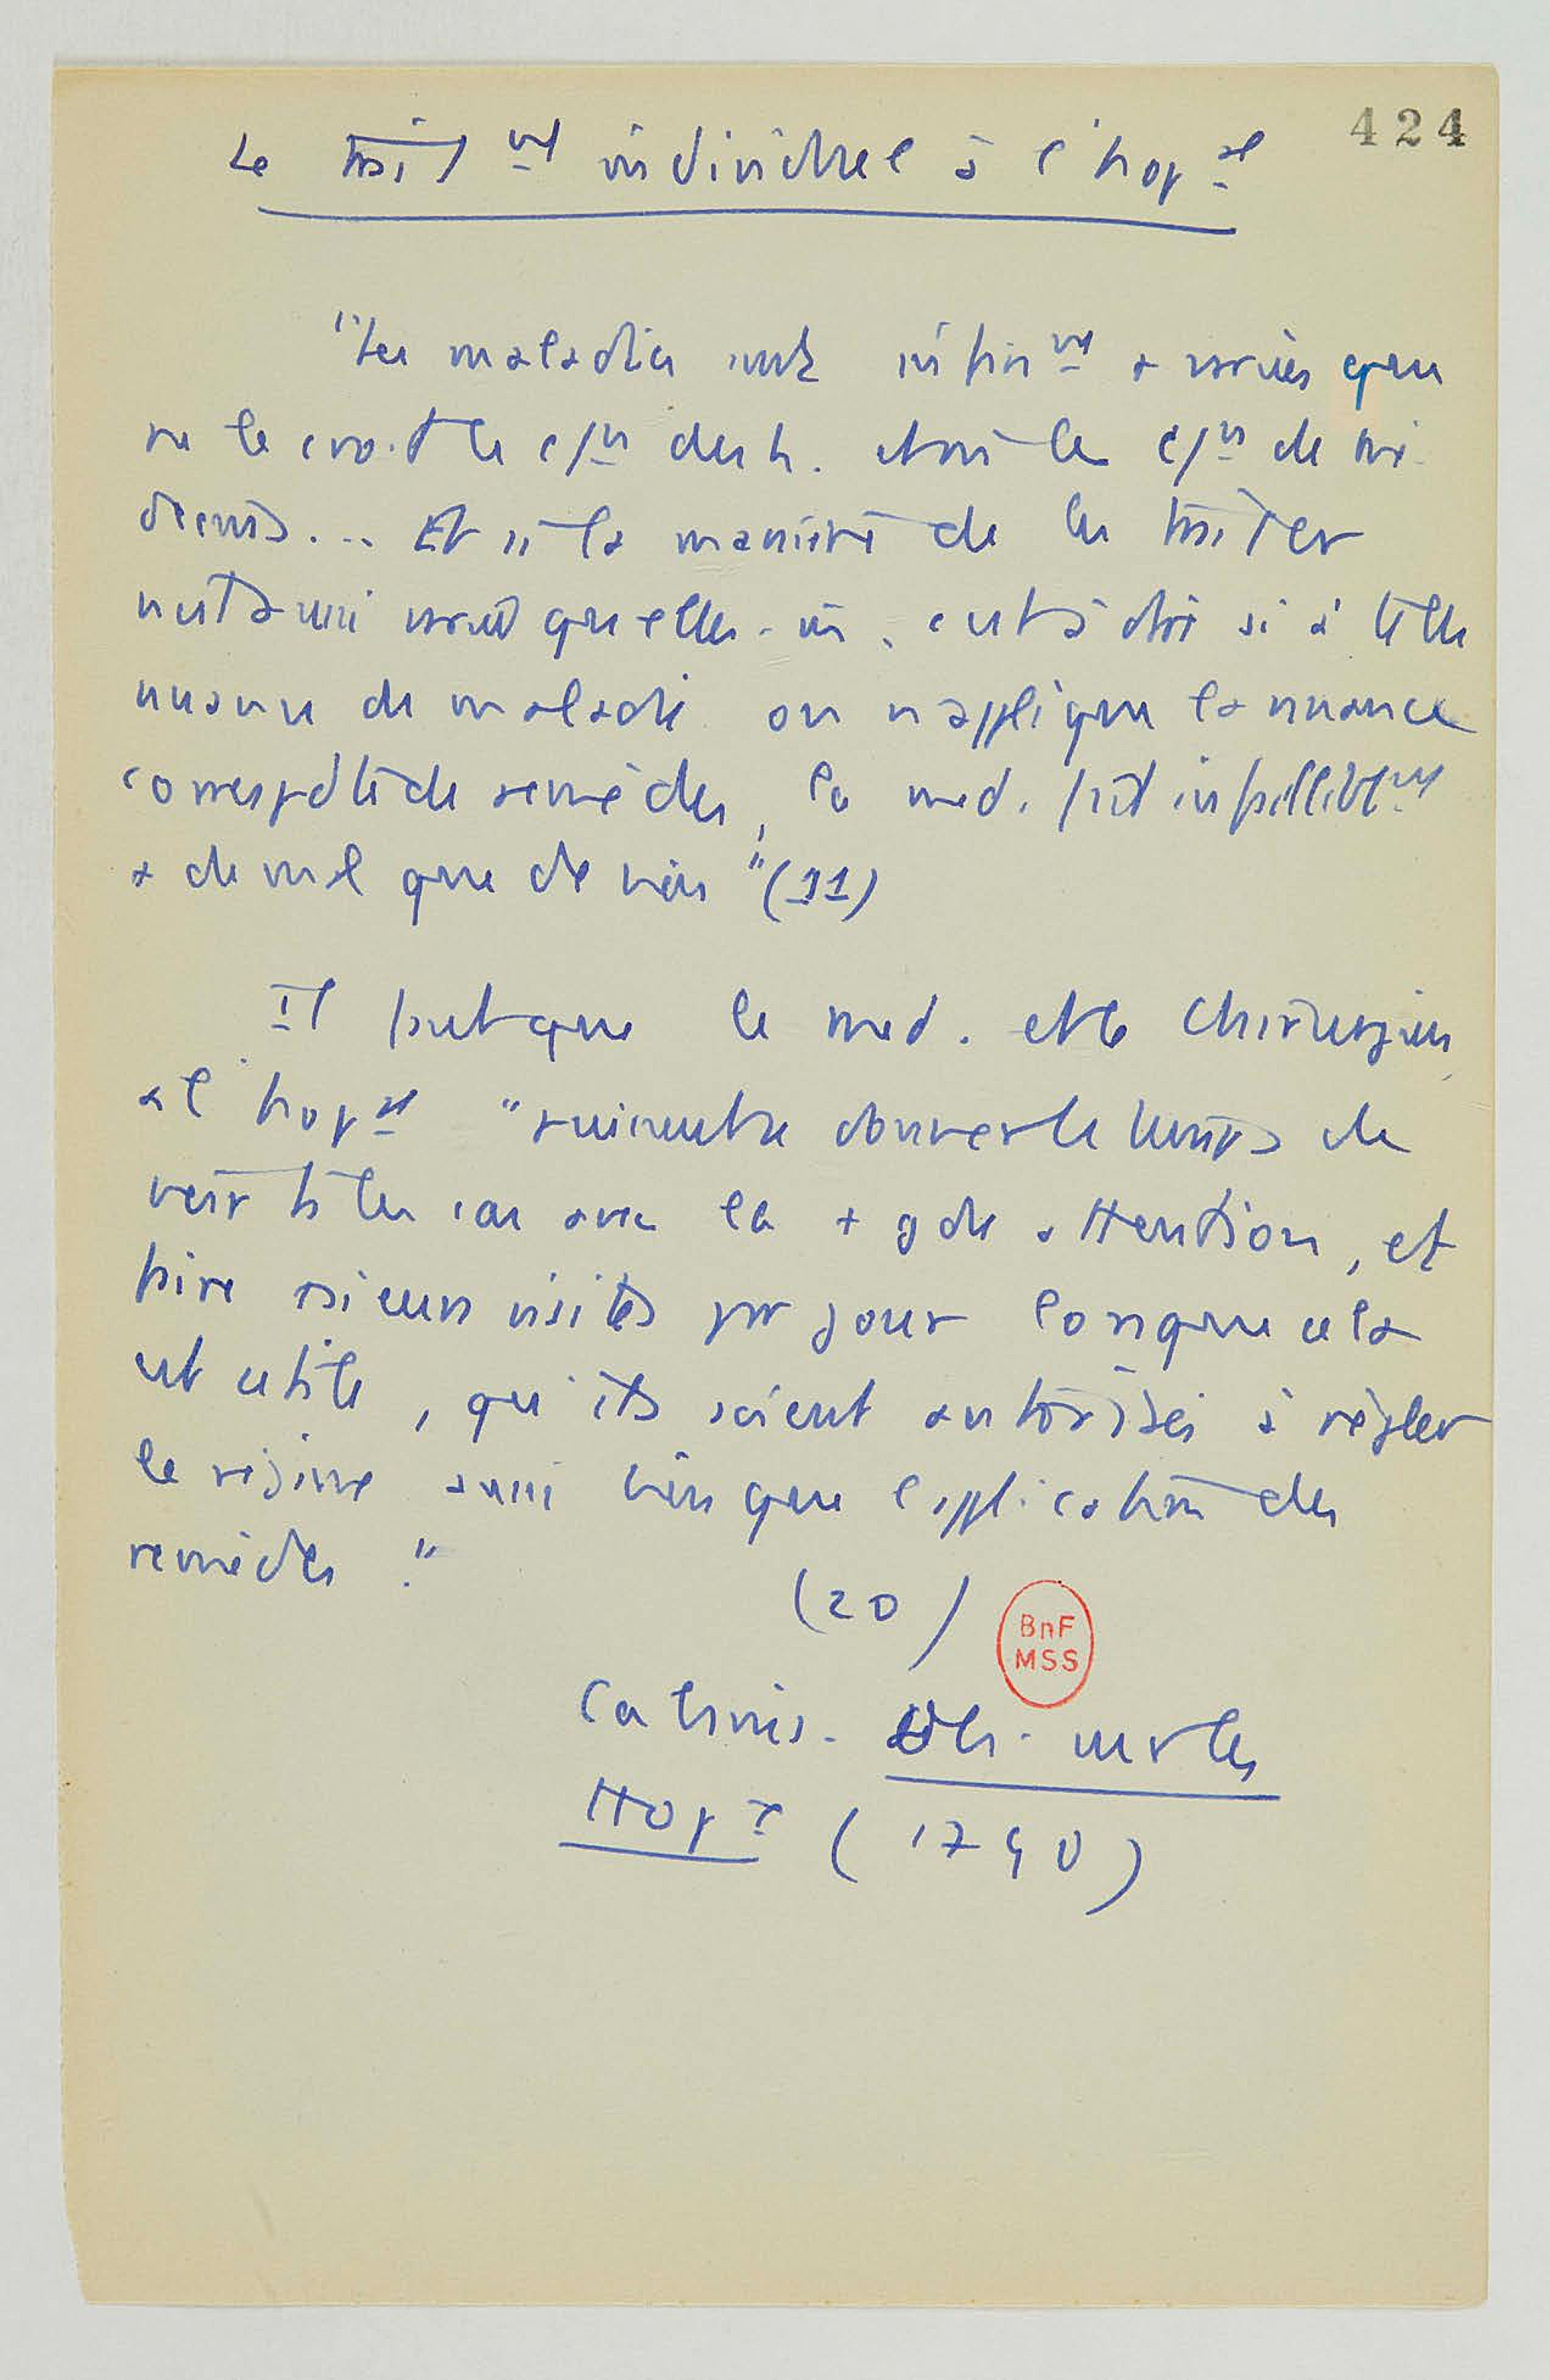 424
Le trait^mt individuel à l'hop^al
"Les maladies sont infin^mt + variées que
ne le croit le c/^un des h. et mê le c/^un de mé-
decins... Et si la manière de les traiter
n'est aussi variée qu'elles-m̂, c'est à dire si à telle
nuance de maladie on n'applique la nuance
correspdte de remèdes, la med. fait infaillibl^mt
+ de mal que de bien" (11)
Il faut que le med. et le chirurgien
de l'hop^al "puissent se donner le temps de
voir ts les cas avec la + gde attention, et
faire visites par jour lorsque cela
est utile, qu'ils soient autorisés à régler
le régime aussi bien que l'application des
remèdes."
(20)
BnF
MSS
Cabanis. Obs. sur les
Hop^x (1790)